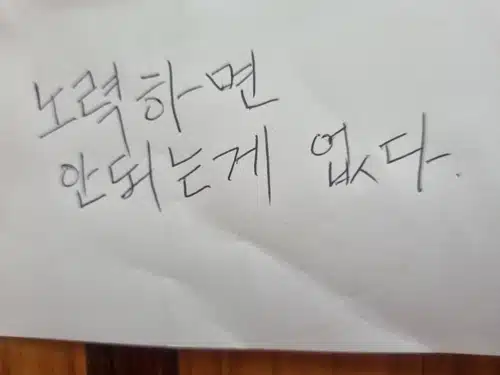 노력하면
안되는게 없다.